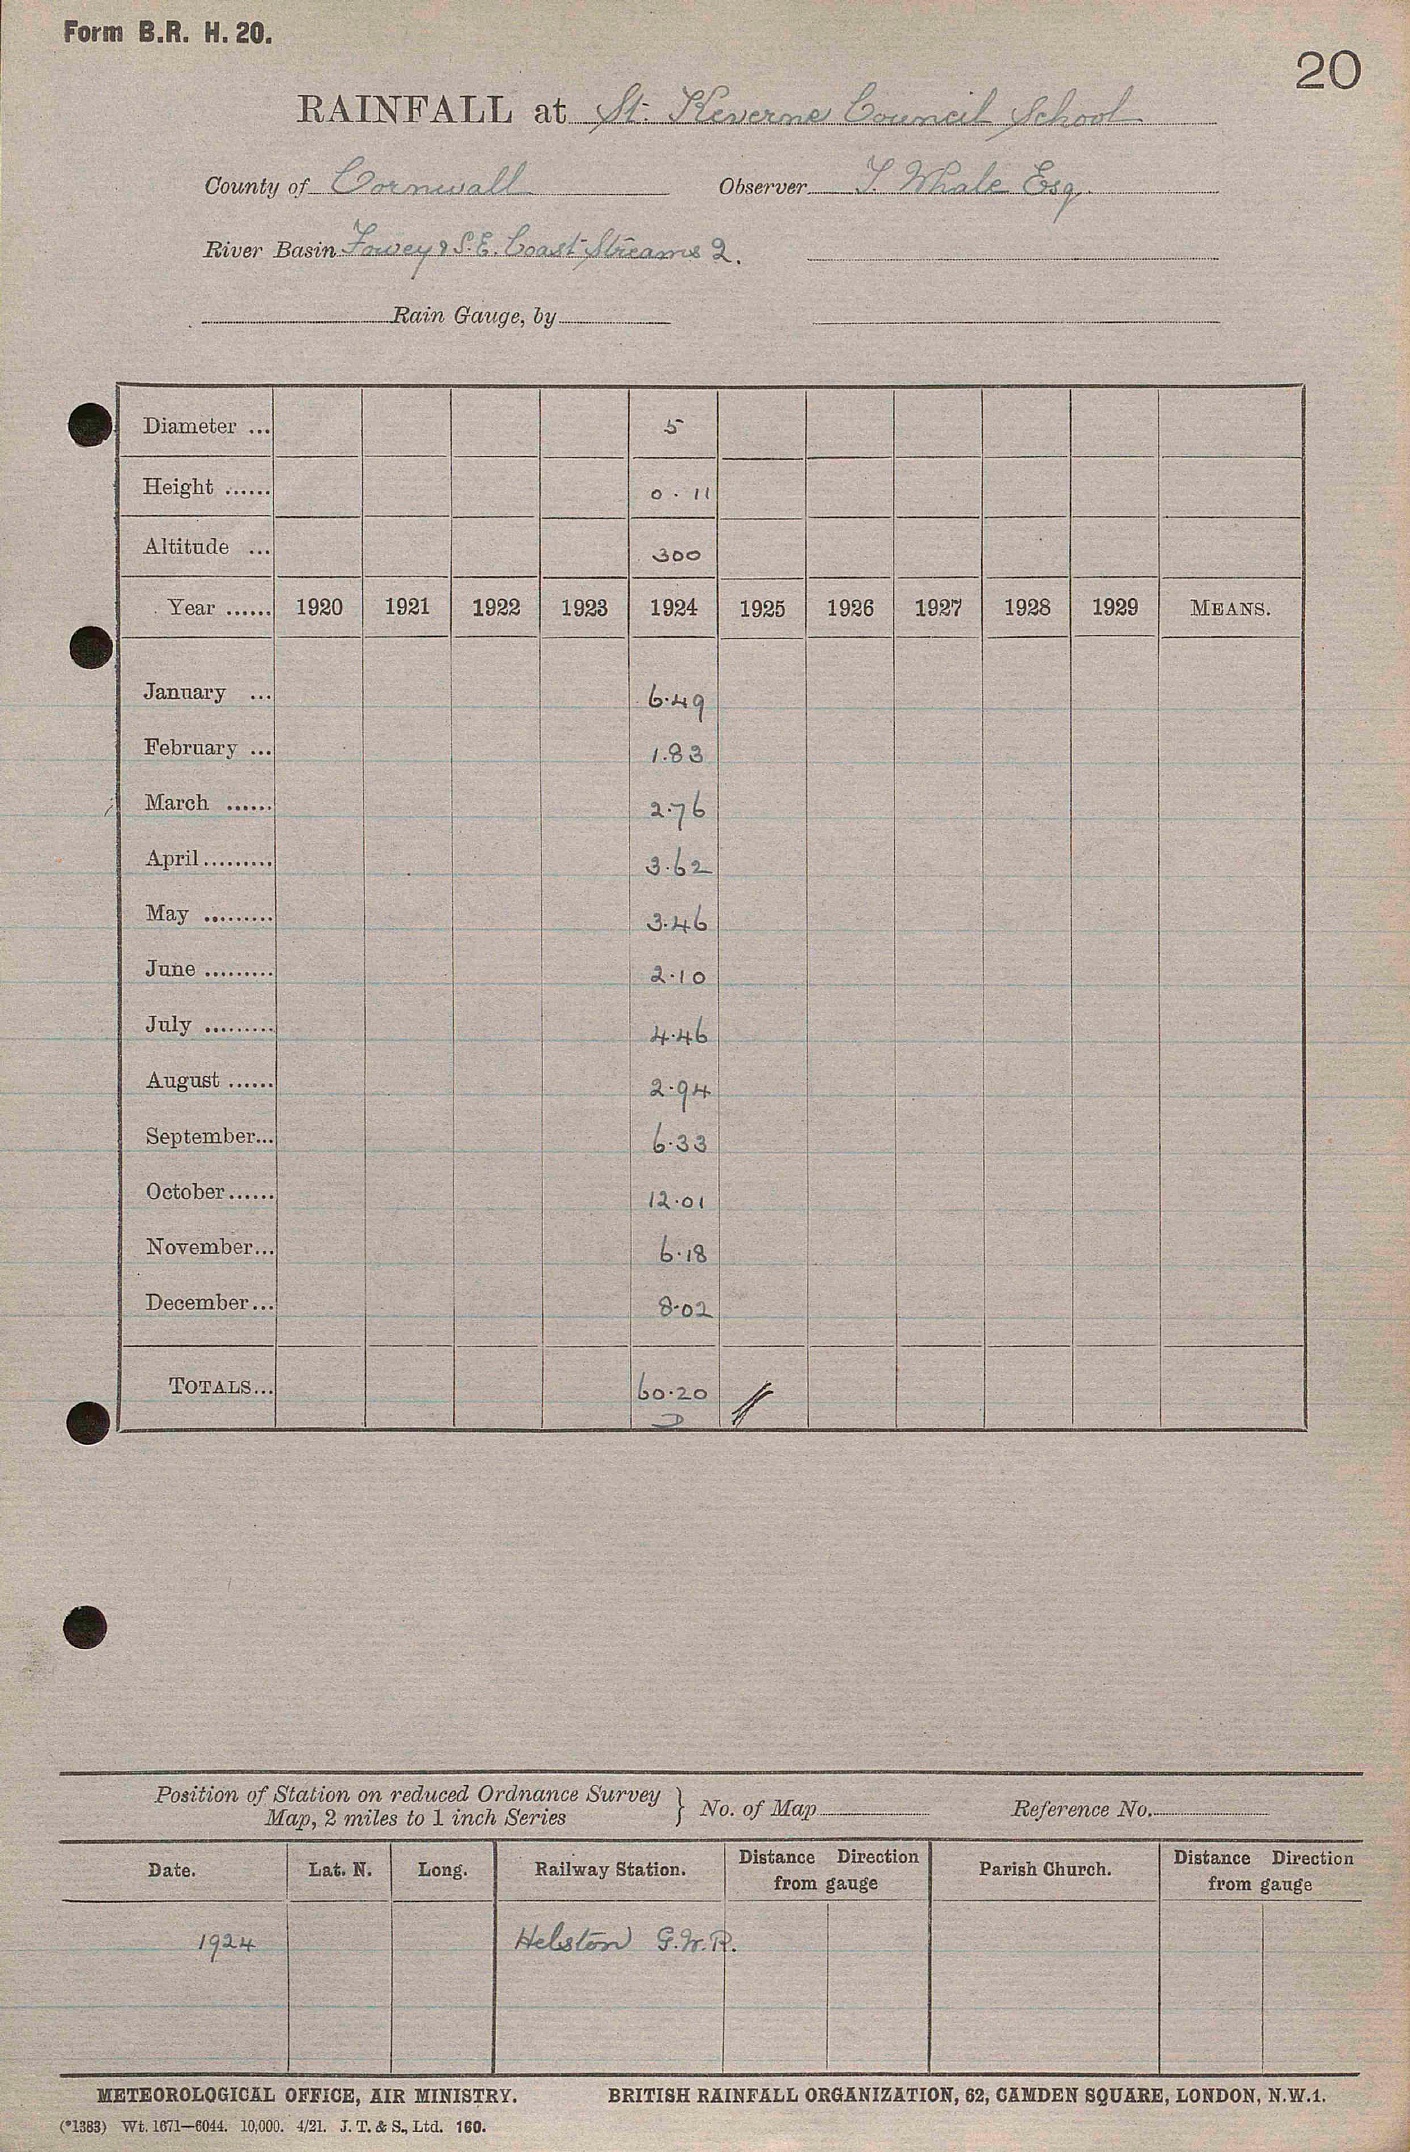 Form B.R. H. 20.
20
RAINFALL at St. Keverne Council School
County of Cornwall Observer T. Whale Esq.
River Basin Fowey & S.E. Coast Streams 2.
Rain Gauge, by
Diameter ... 5
Height ...... 0 . 11
Altitude ... 300
Year ...... 1920 1921 1922 1923 1924 1925 1926 1927 1928 1929 MEANS.
January ... 6.49
February ... 1.83
March ...... 2.76
April......... 3.62
May ......... 3.46
June ......... 2.10
July ......... 4.46
August ...... 2.94
September... 6.33
October...... 12.01
November... 6.18
December... 8.02
TOTALS... 60.20
D
Position of Station on reduced Ordnance Survey
Map, 2 miles to 1 inch Series } No. of Map Reference No.
Date. Lat. N. Long. Railway Station. Distance Direction from gauge Parish Church. Distance Direction from gauge
1924 Helston G.W.R.
METEOROLOGICAL OFFICE, AIR MINISTRY. BRITISH RAINFALL ORGANIZATION, 62, CAMDEN SQUARE, LONDON, N.W.1.
(*1383) Wt. 1671—6044. 10,000. 4/21. J. T. & S., Ltd. 160.